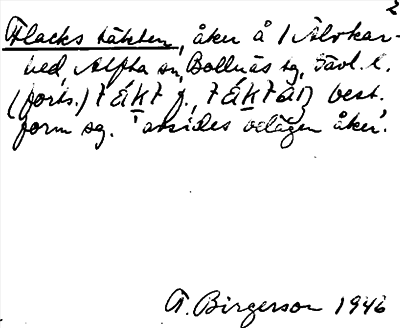 2
Flacks täkten, åker å 1 Älvkar-
hed, Alfta sn, Bollnäs tg, Gävl. l.
(forts.) f., best.
form sg. 'avsides belägen åker'.
A. Birgerson 1946